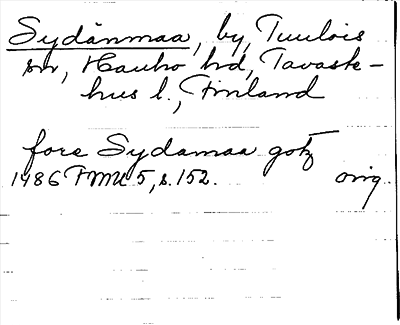 Sydänmaa, by, Tuulois
sn, Hauho hd, Tavaste-
hus l., Finland
fore Sydamaa gotz
1486 FMU 5, s. 152. orig